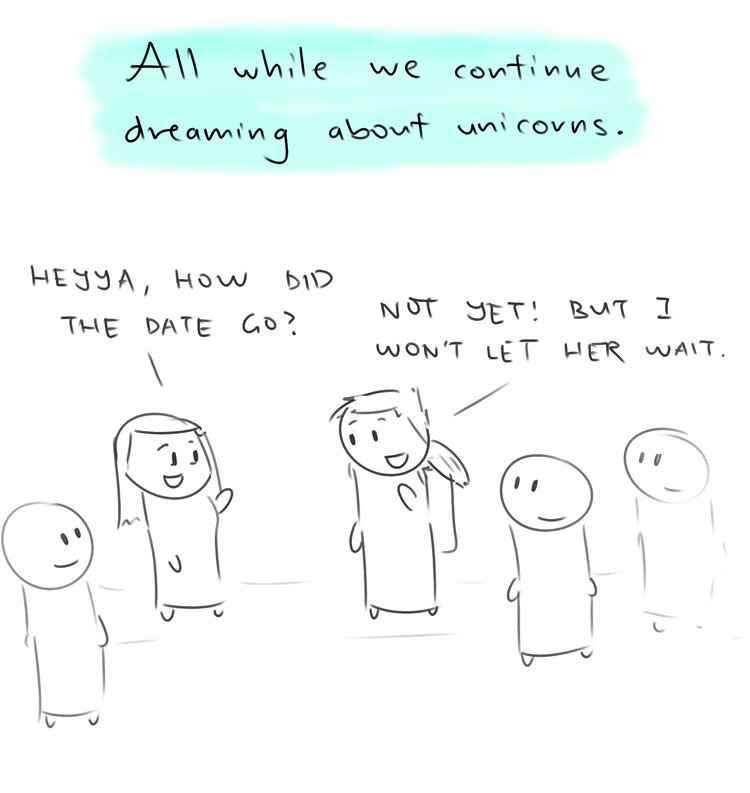 All while we continue
dreaming about unicorns.
HEYYA, HOW DID
THE DATE GO?
NOT YET! BUT I
WON'T LET HER WAIT.